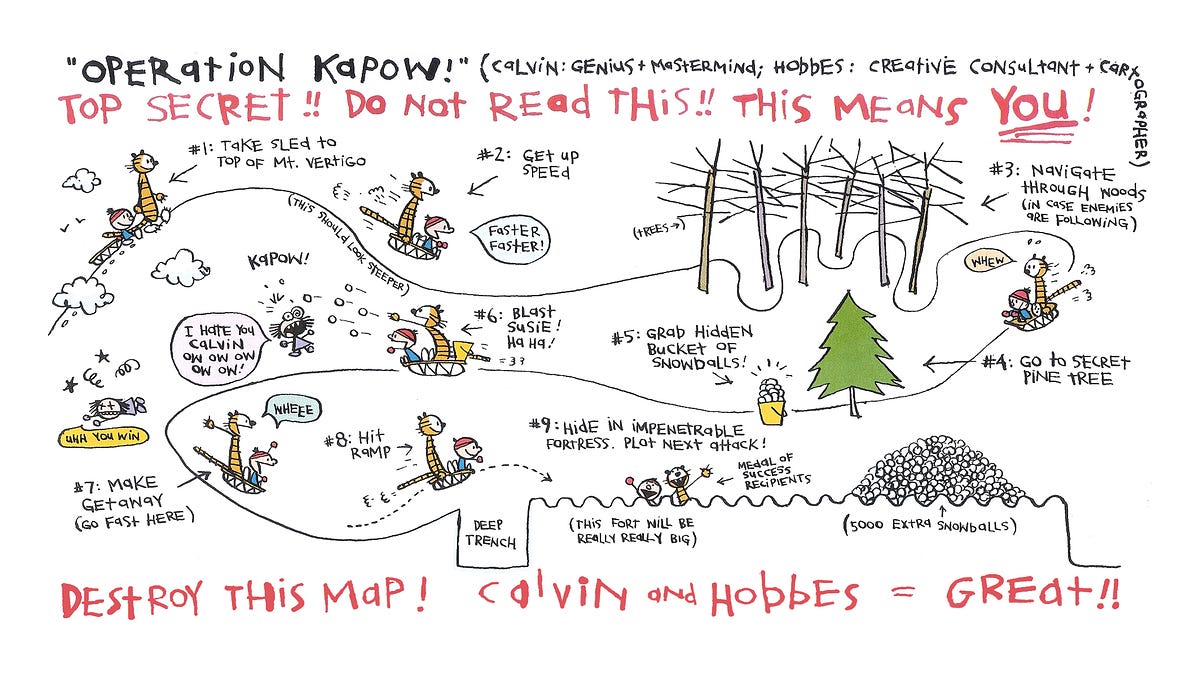 "OPERATION KAPOW!" (CALVIN: GENIUS + MASTERMIND; HOBBES: CREATIVE CONSULTANT + CARTOGRAPHER)
TOP SECRET!! DO NOT READ THIS!! THIS MEANS YOU!
#1: TAKE SLED TO
TOP OF MT. VERTIGO
#2: GET UP
SPEED
FASTER
FASTER!
(THIS SHOULD LOOK STEEPER)
(TREES→)
#3: NAVIGATE
THROUGH WOODS
(IN CASE ENEMIES
ARE FOLLOWING)
WHEW
#4: GO TO SECRET
PINE TREE
#5: GRAB HIDDEN
BUCKET OF
SNOWBALLS!
#6: BLAST
SUSIE!
HA HA!
KAPOW!
I HATE YOU
CALVIN
OW OW OW
OW OW!
UHH YOU WIN
#7: MAKE
GETAWAY
(GO FAST HERE)
WHEEE
#8: HIT
RAMP
DEEP
TRENCH
#9: HIDE IN IMPENETRABLE
FORTRESS. PLOT NEXT ATTACK!
MEDAL OF
SUCCESS
RECIPIENTS
(THIS FORT WILL BE
REALLY REALLY BIG)
(5000 EXTRA SNOWBALLS)
DESTROY THIS MAP! CALVIN AND HOBBES = GREAT!!